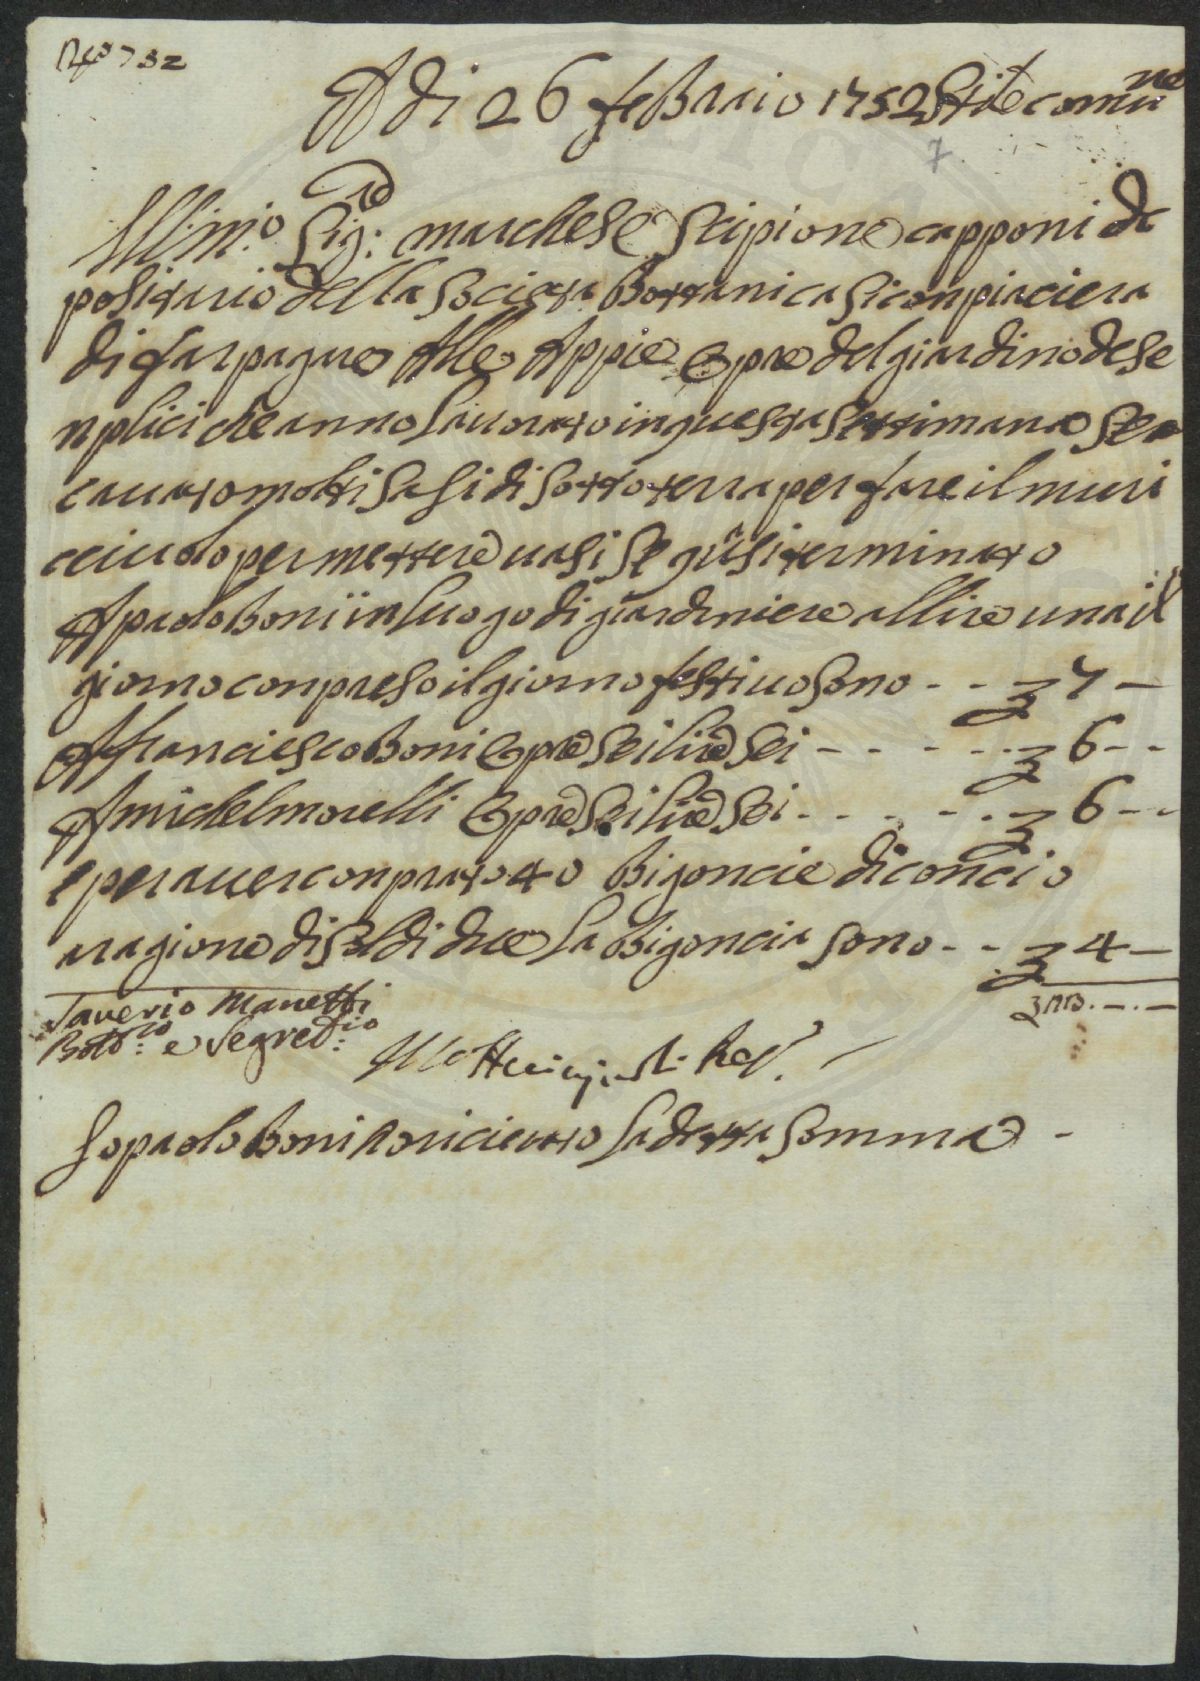 N° 732
A dì 26 febraio 1752 Stile comune
7
Ill:mo Sig:re marchese Scipione capponi de
positario della Sociata Bottanica si conpiaciera
di far pagare Alle Appie Opre del giardino dese
nplici che anno lauorato in questa settimana Se
cauato molti sasi di sotto terra per fare il muri
cciuolo per mettere uasi Se quasi terminato
A paolo Boni in luogo di giardiniere allire una il
giorno conpreso il giorno festiuo sono - - £ 7 —
A franciesco Boni Opre sei lire sei - - - - - £ 6 - -
A michel morelli Opre sei lire sei - - - - - £ 6 - -
e per auer conprato 40 bigoncie di concio
aragione di soldi due la bigoncia sono - - £ 4 —
£ 23. —. —
Saverio Manetti
Bott:co e Segret:rio
Io paolo Boni o riceuuto la detta somma -